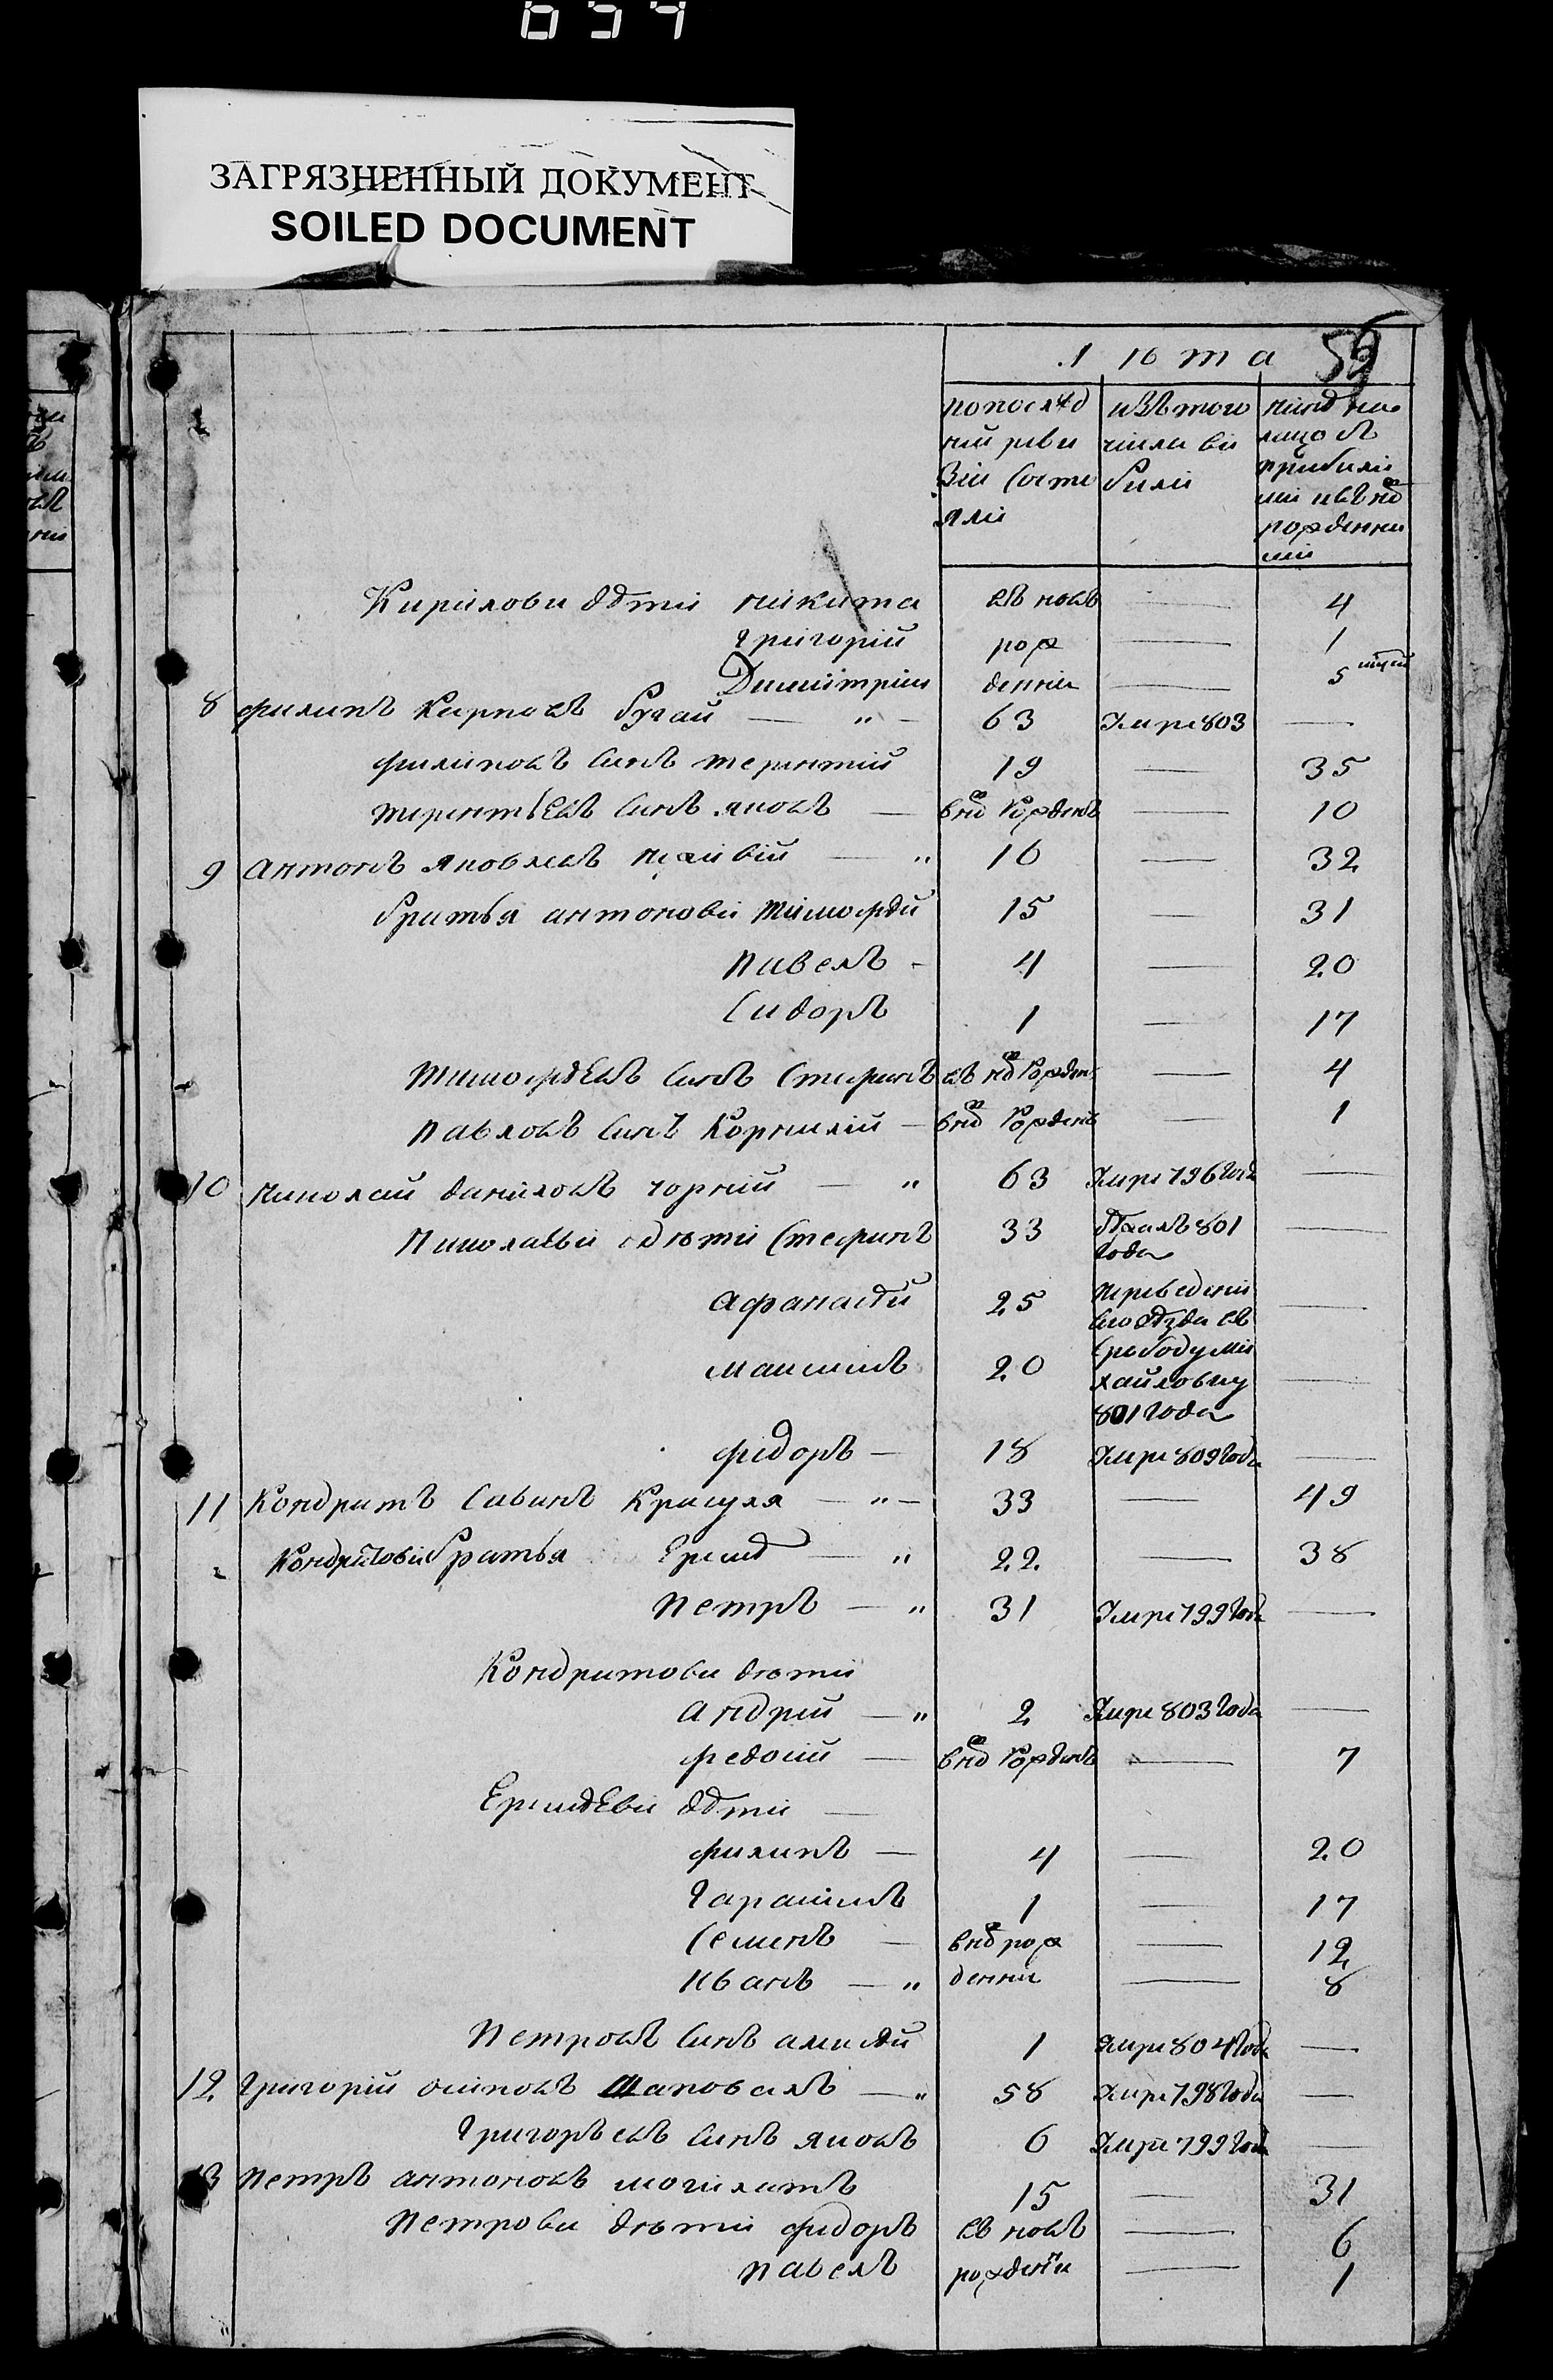 ЗАГРЯЗНЕННЫЙ ДОКУМЕНТ
SOILED DOCUMENT
59
лѣта
попослѣд ній реви зіи состо яли
изътого числа ви були
нинѣ на лицо съ прибилі ми
Кирилови дѣти никита въ новъ — 4
григорій рож — 1
Димитрій денни — 5
8 филипъ Карповъ бугай — " — 63 Умре 803 —
филиповъ синъ терентій 19 — 35
терентьевъ синъ яковъ — внов рожденъ — 10
9 антонъ яковлевъ — " 16 — 32
братья антонови тимофѣй 15 — 31
павелъ - 4 — 20
Сидоръ 1 — 17
тимофѣевъ синъ Стефанъ въ нов рожден — 4
павловъ синъ Корнилій — внов рожденъ — 1
10 николай даниловъ чорній — " 63 Умре 796 года —
николаеви дѣти Стефанъ 33 801 года —
афанасѣй 25 переведени
—
максимъ 20 слободу ми хайловку 801 года —
федоръ — 18 Умре 809 года —
11 Кондратъ Савинъ Красуля — " — 33 — 49
Кондратови братья Еремѣ — " 22 — 38
петръ — " 31 Умре 799 года —
Кондратови дѣти
андрій — " 2 Умре 803 года —
федосій — внов рожденъ — 7
Еремѣеви дѣти —
филипъ — 4 — 20
гарасимъ 1 — 17
Семенъ — внов рож — 12
иванъ — " денни — 8
петровъ синъ алексѣй 1 Умре 804 года —
12 григорій осиповъ Шаповалъ — " 58 Умре 798 года —
григорьевъ синъ яковъ 6 Умре 799 года —
13 петръ антоновъ 15 — 31
петрови дѣти федоръ въ новъ — 6
павелъ рожденни — 1